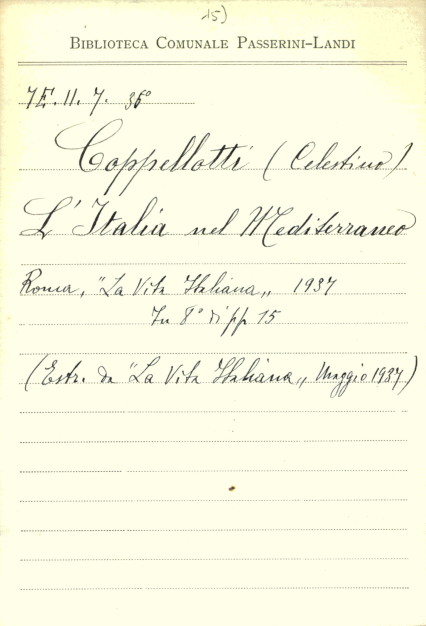 15)
BIBLIOTECA COMUNALE PASSERINI-LANDI
7E. 11. 7. 36°
Coppellotti (Celestino)
L'Italia nel Mediterraneo
Roma, "La Vita Italiana„ 1937
In 8° di pp 15
(Estr. da "La Vita Italiana„ Maggio 1937)